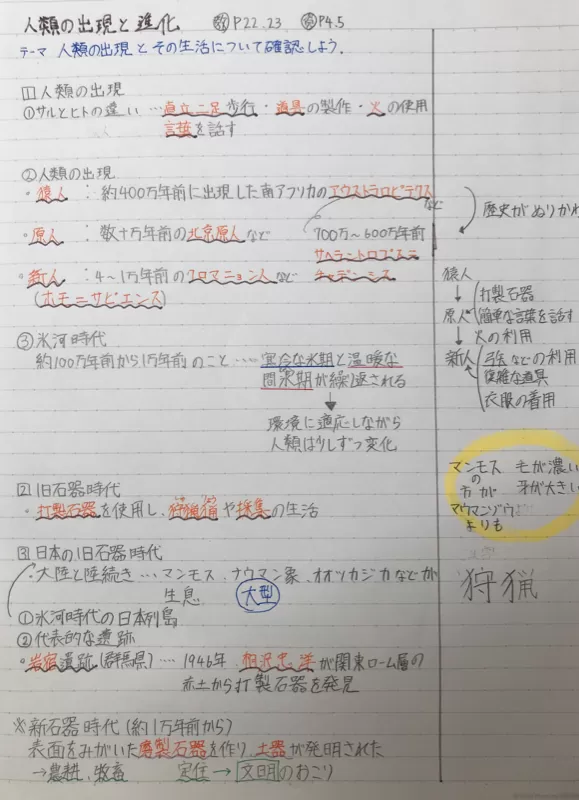 人類の出現と進化 教P22.23 資P4.5
テーマ 人類の出現とその生活について確認しよう.
1 人類の出現
①サルとヒトの違い…直立二足歩行・道具の製作・火の使用
言葉を話す
②人類の出現
・猿人:約400万年前に出現した南アフリカのアウストラロピテクスなど
・原人:数十万年前の北京原人など 700万~600万年前
サヘラントロプス=
・新人:4~1万年前のクロマニョン人など チャデンシス
(ホモ=サピエンス)
③氷河時代
約100万年前から1万年前のこと…寒冷な氷期と温暖な
間氷期が繰り返される
↓
環境に適応しながら
人類は少しずつ変化
2 旧石器時代
・打製石器を使用し、狩猟や採集の生活
3 日本の旧石器時代
・大陸と陸続き…マンモス、ナウマン象、オオツカジカなどが
生息 大型
①氷河時代の日本列島
②代表的な遺跡
・岩宿遺跡(群馬県)…1946年、相沢忠洋が関東ローム層の
赤土から打製石器を発見
※新石器時代(約1万年前から)
表面をみがいた磨製石器を作り、土器が発明された
→農耕、牧畜 定住→文明のおこり
歴史がぬりかわ
猿人
↓ 打製石器
原人 簡単な言葉を話す
↓ 火の利用
新人 弓矢などの利用
複雑な道具
衣服の着用
マンモス 毛が濃い
の方が 牙が大きい
ナウマンゾウ
よりも
狩猟